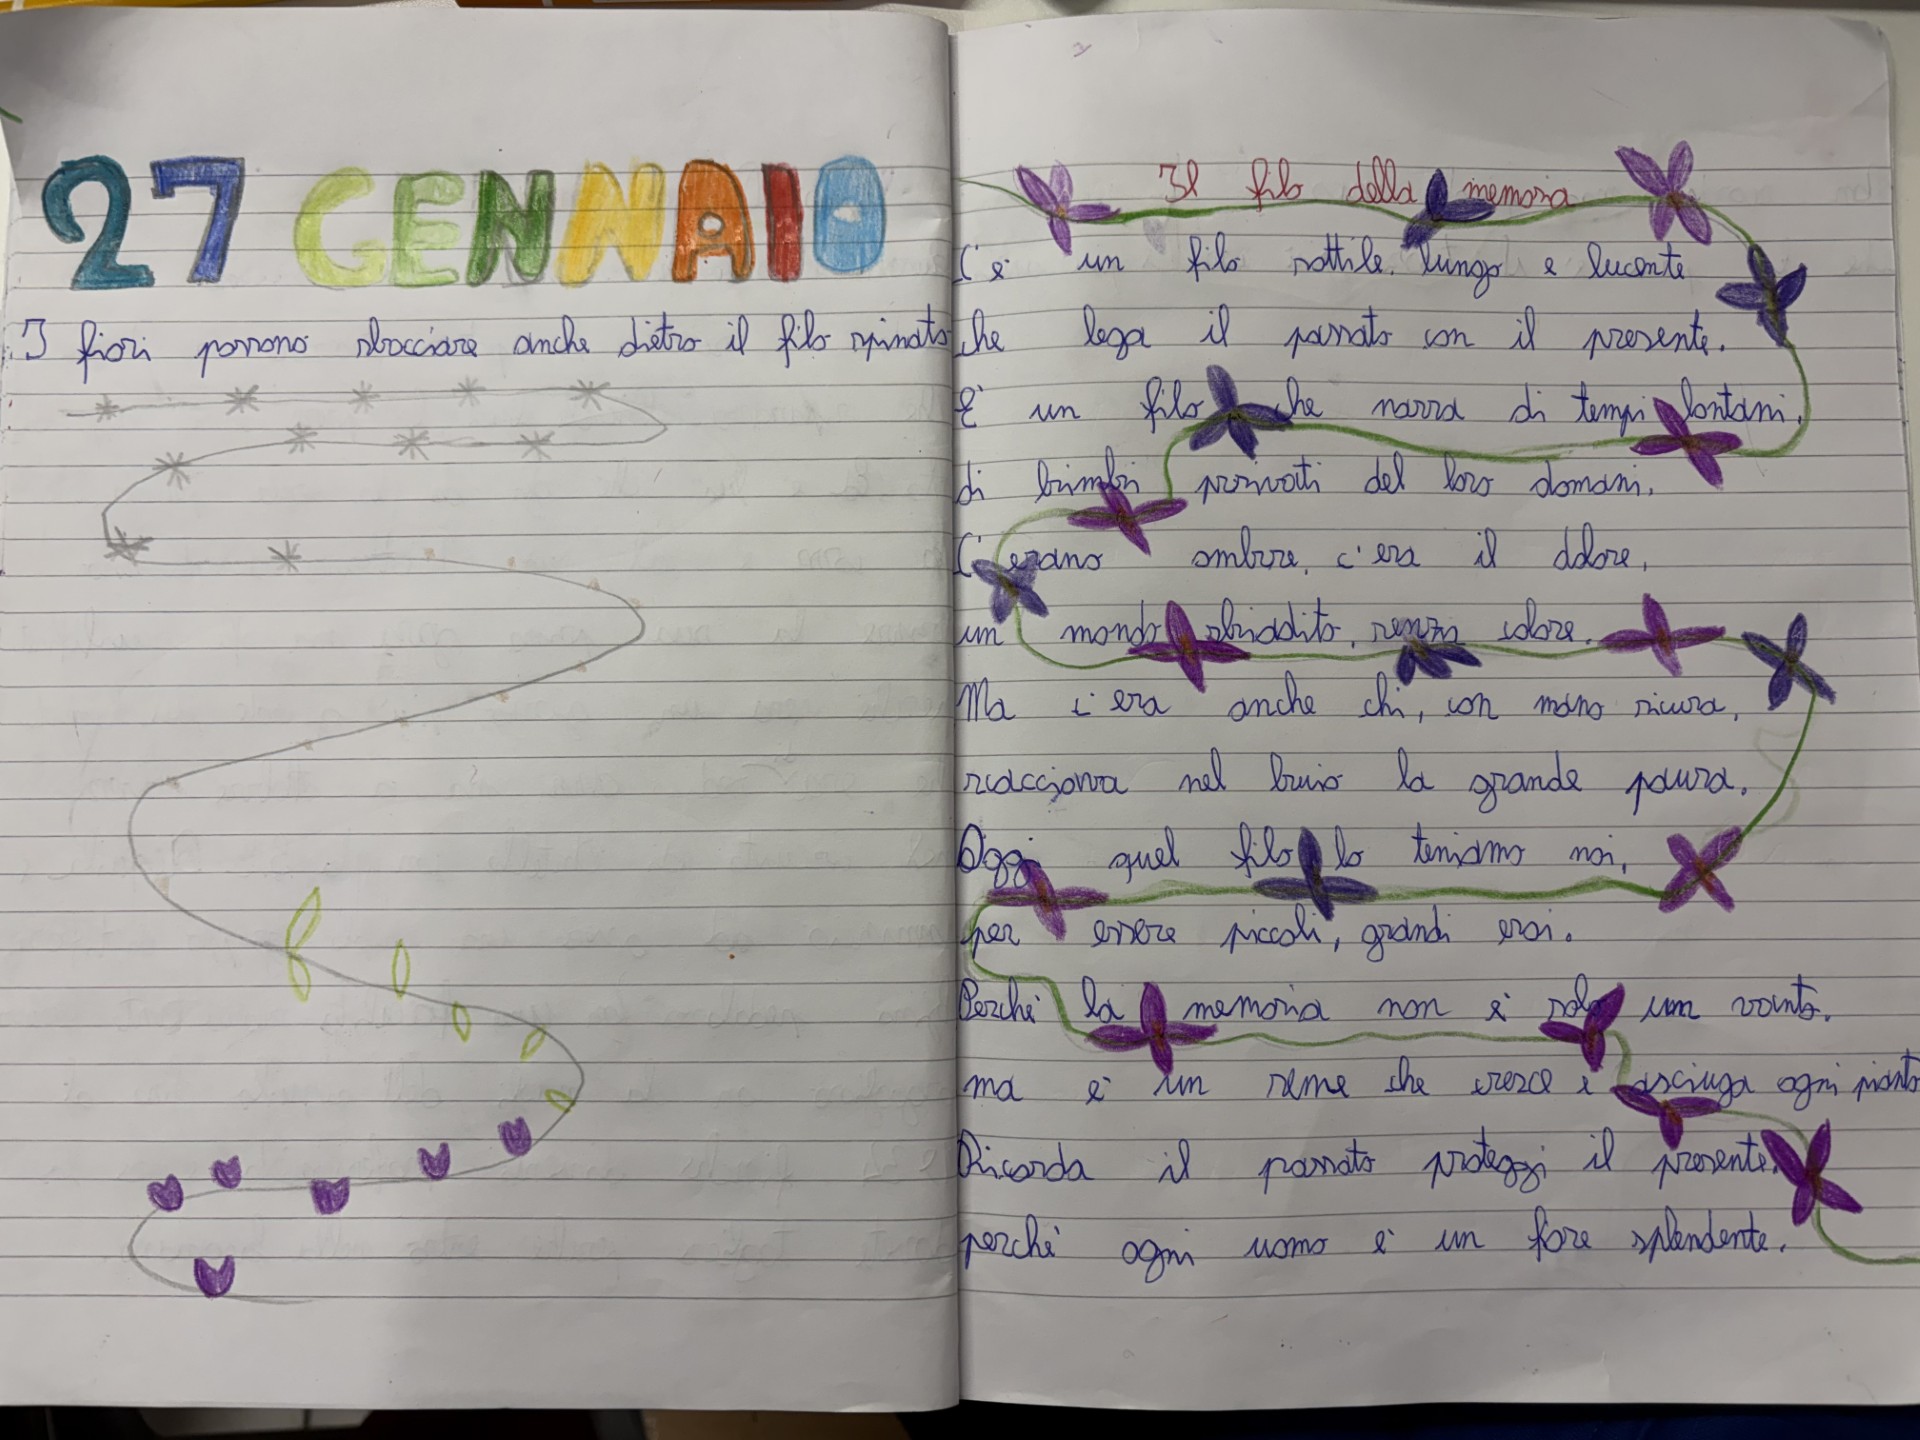 27 GENNAIO
I fiori possono sbocciare anche dietro il filo spinato
Il filo della memoria
C'è un filo sottile, lungo e lucente
che lega il passato con il presente.
È un filo che narra di tempi lontani,
di bimbi privati del loro domani.
C'erano ombre, c'era il dolore,
un mondo sbiadito, senza colore.
Ma c'era anche chi, con mano sicura,
scacciava nel buio la grande paura.
Oggi quel filo lo teniamo noi,
per essere piccoli, grandi eroi.
Perché la memoria non è solo un vanto,
ma è un seme che cresce e asciuga ogni pianto
Ricorda il passato proteggi il presente,
perché ogni uomo è un fiore splendente.